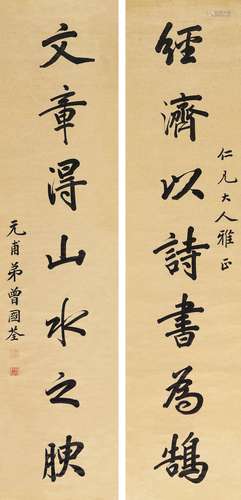 經濟以詩書為鵠
仁凡大人雅正
文章得山水之腴
元甫弟曾國荃